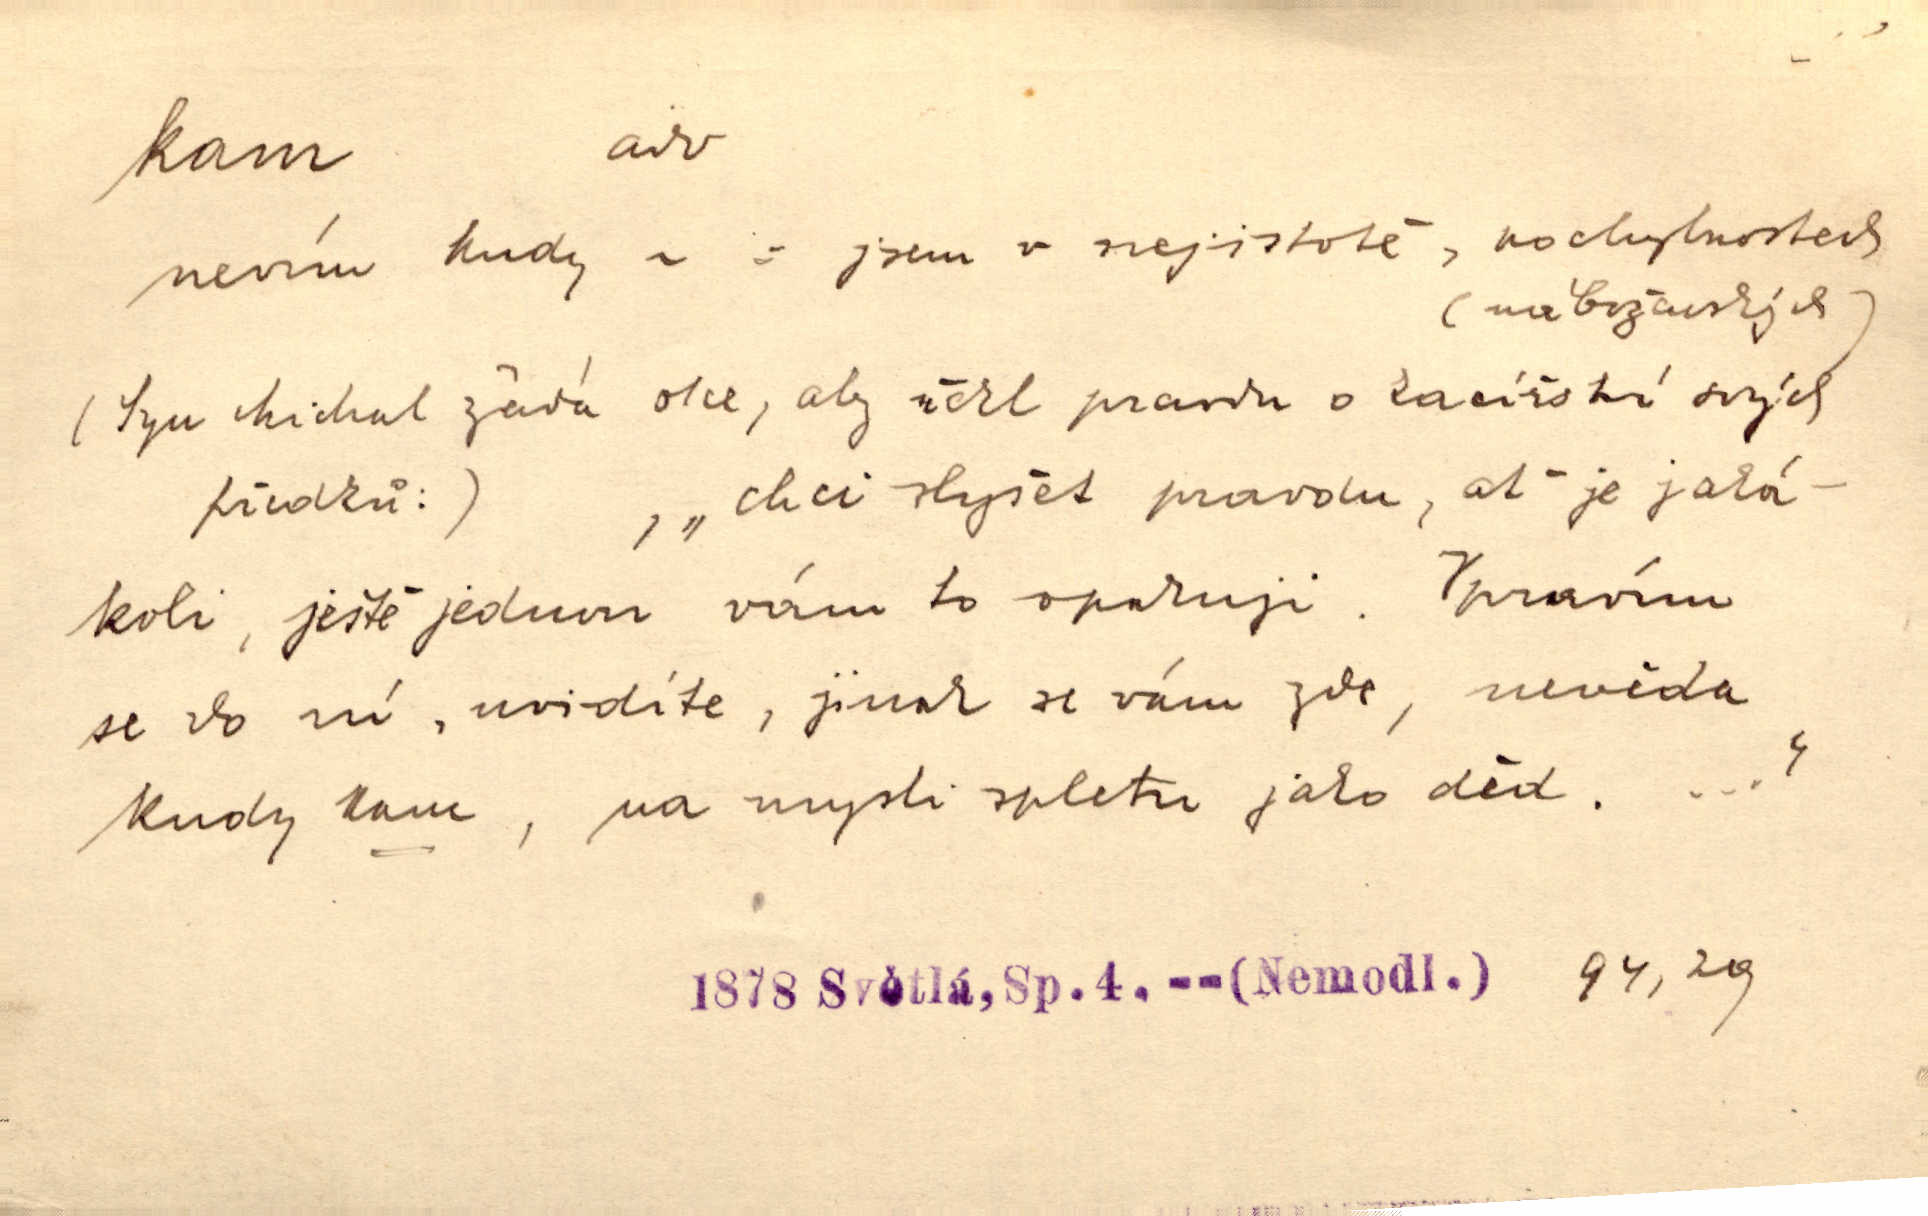 kam adv
nevím kudy ~ = jsem v nejistotě, pochybnostech
(náboženských)
(Syn Michal žádá otce, aby řekl pravdu o kacířství svých
předků:) , „chci slyšet pravdu, ať je jaká-
koli, ještě jednou vám to opakuji. Vpravím
se do ní, uvidíte, jinak se vám zde, nevěda
kudy kam, na mysli spletu jako děd. ..."
1878 Světlá, Sp. 4. -- (Nemodl.) 94, 29